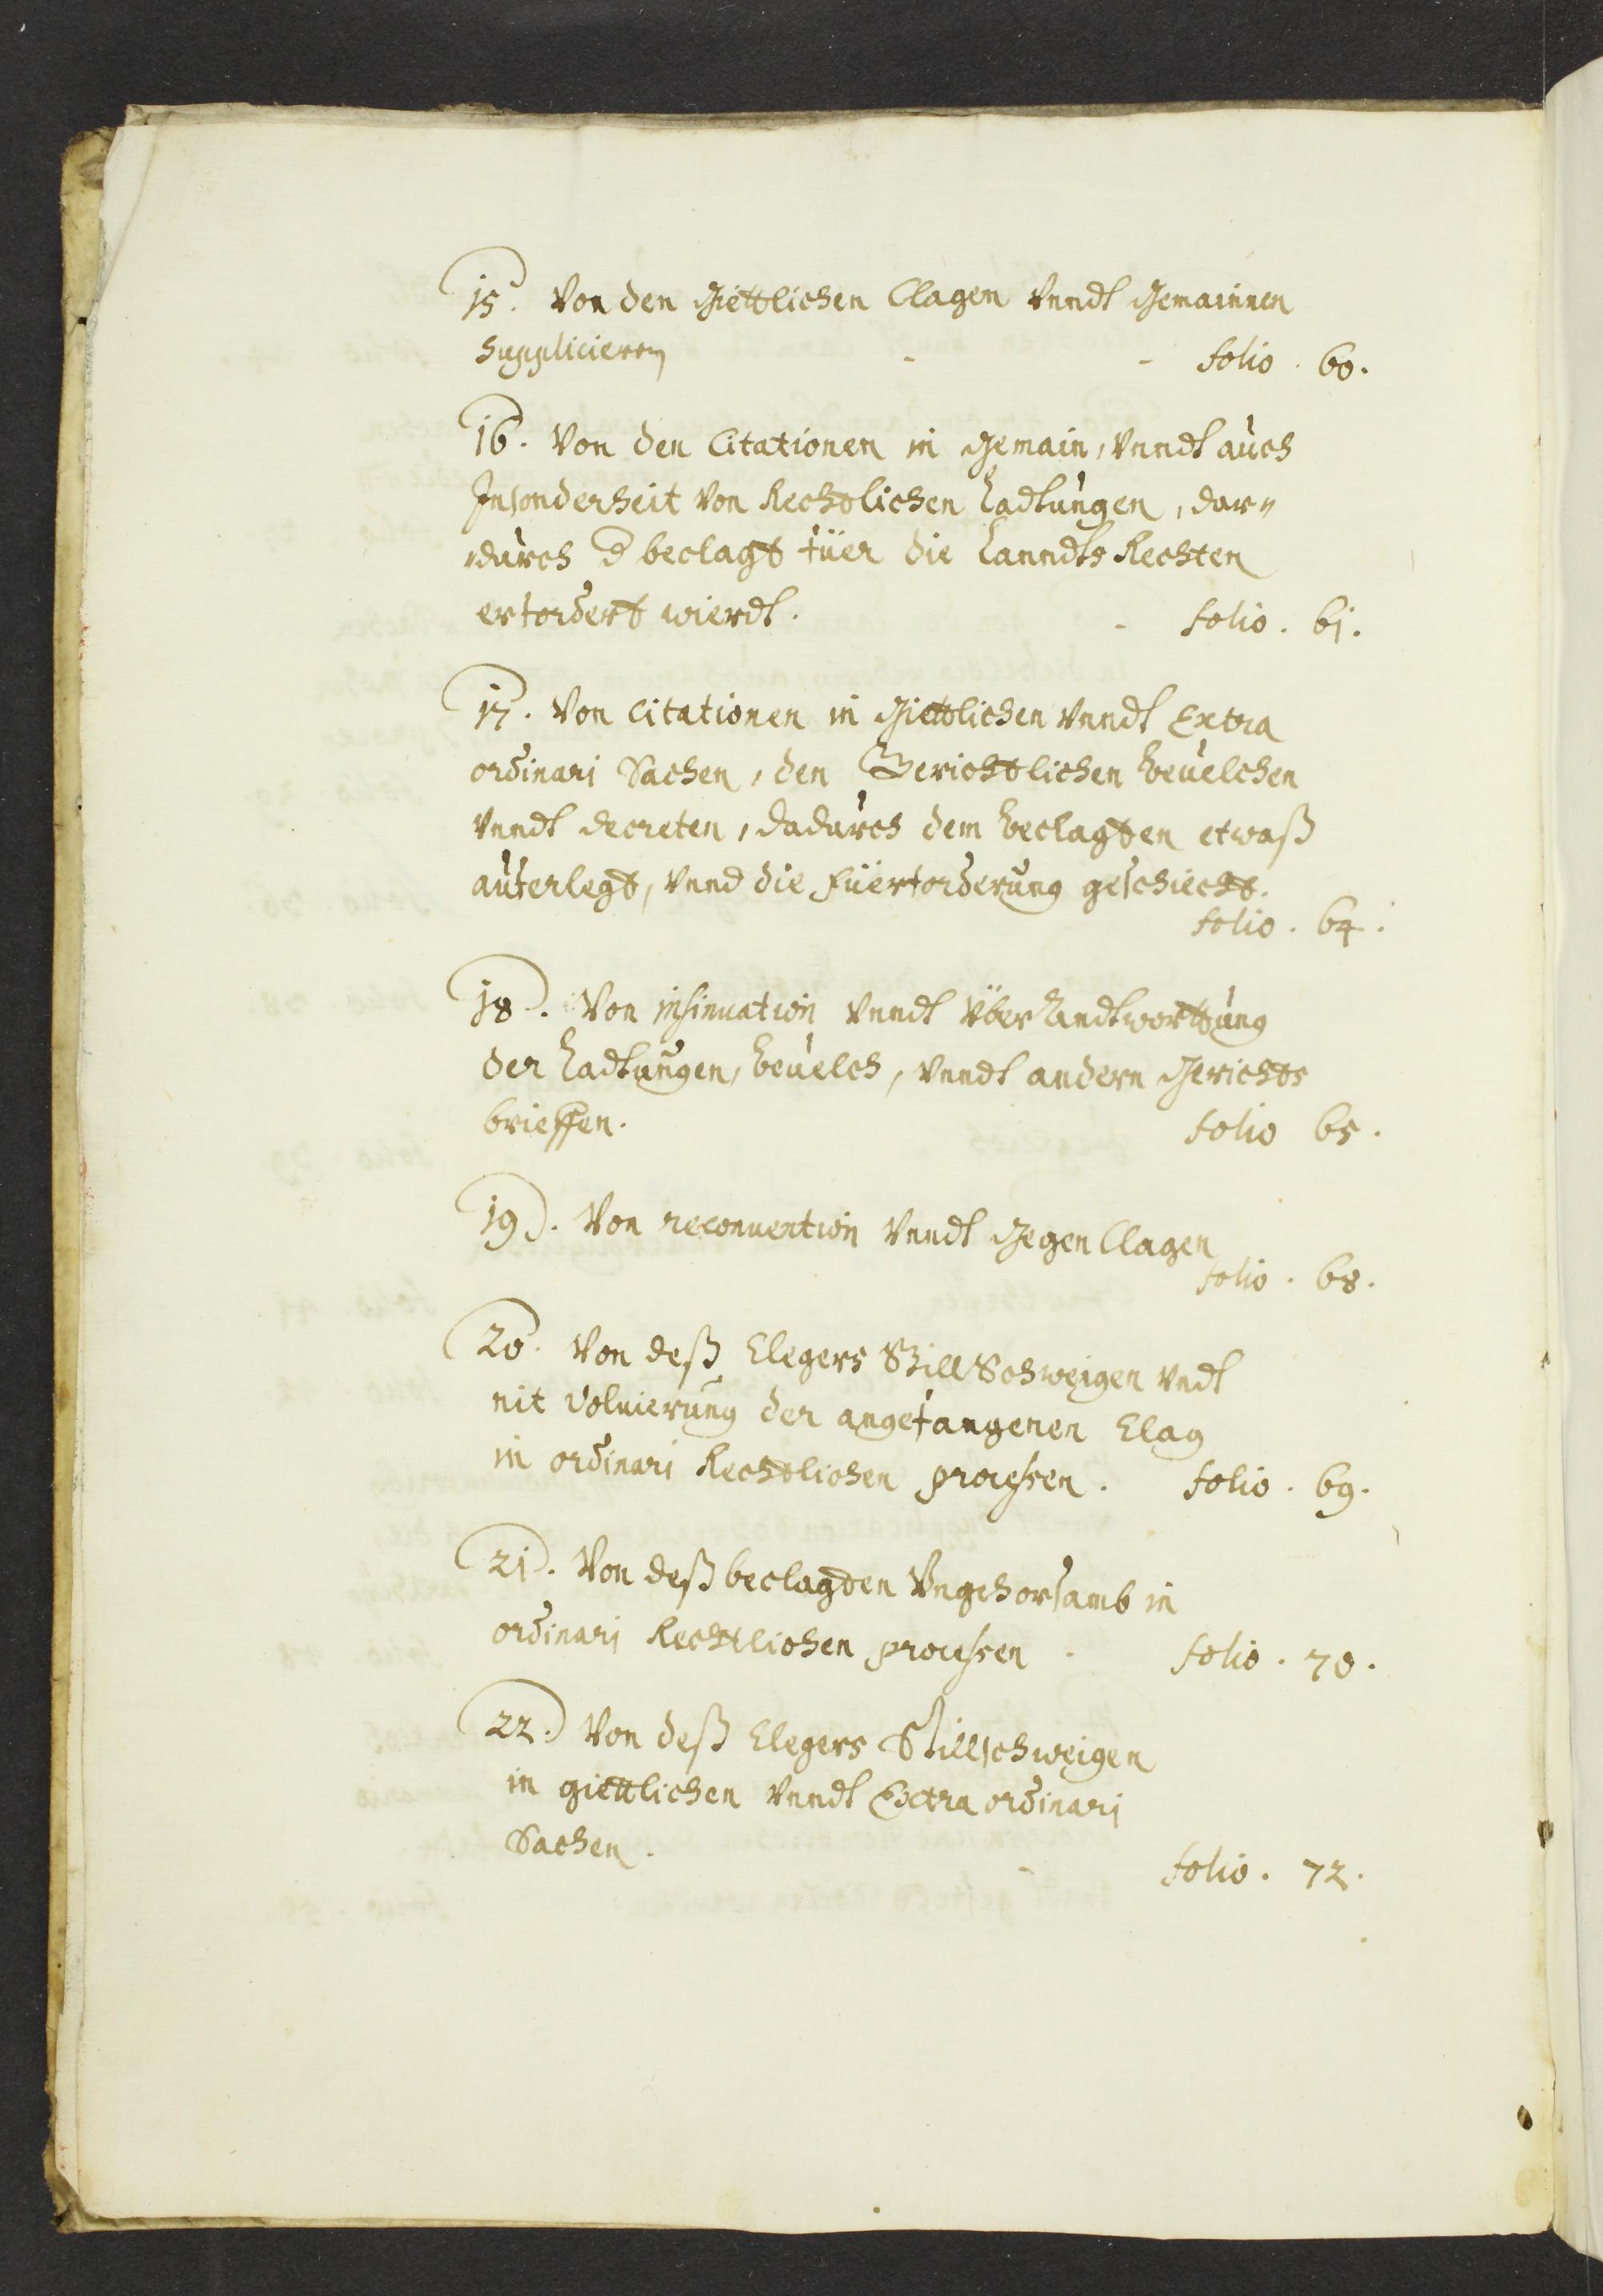 15. Von den Giettlichen Clagen vnndt Gemainen
Supplicieren - - folio . 60.
16. Von den Citationen in Gemain, vnndt auch
Insonderheit von Rechtlichen Ladtungen, dar„
„durch d beclagt füer die Lanndts Rechten
erfordert wierdt. - folio . 61.
17. Von Citationen in Giettlichen vnndt Extra
ordinari Sachen, den Gerichtlichen beuelchen
vnndt decreten, dadurch dem beclagten etwaß
auferlegt, vnnd die Füerforderung geschiecht.
folio . 64.
18. Von insinuation vnndt Überandtworttung
der Ladtungen, beuelch, vnndt andern Gerichts
brieffen. folio 65.
19. Von reconuention vnndt Gegen Clagen
folio . 68.
20. Von deß Clegers Still Schweigen vndt
nit Volnierung der angefangenen Clag
in ordinari Rechtlichen processen. folio . 69.
21. Von deß beclagten Vngehorsamb in
ordinari Rechtlichen processen . folio . 70.
22. Von deß Clegers Stillschweigen
in giettlichen vnndt Extra ordinari
Sachen. - folio . 72.